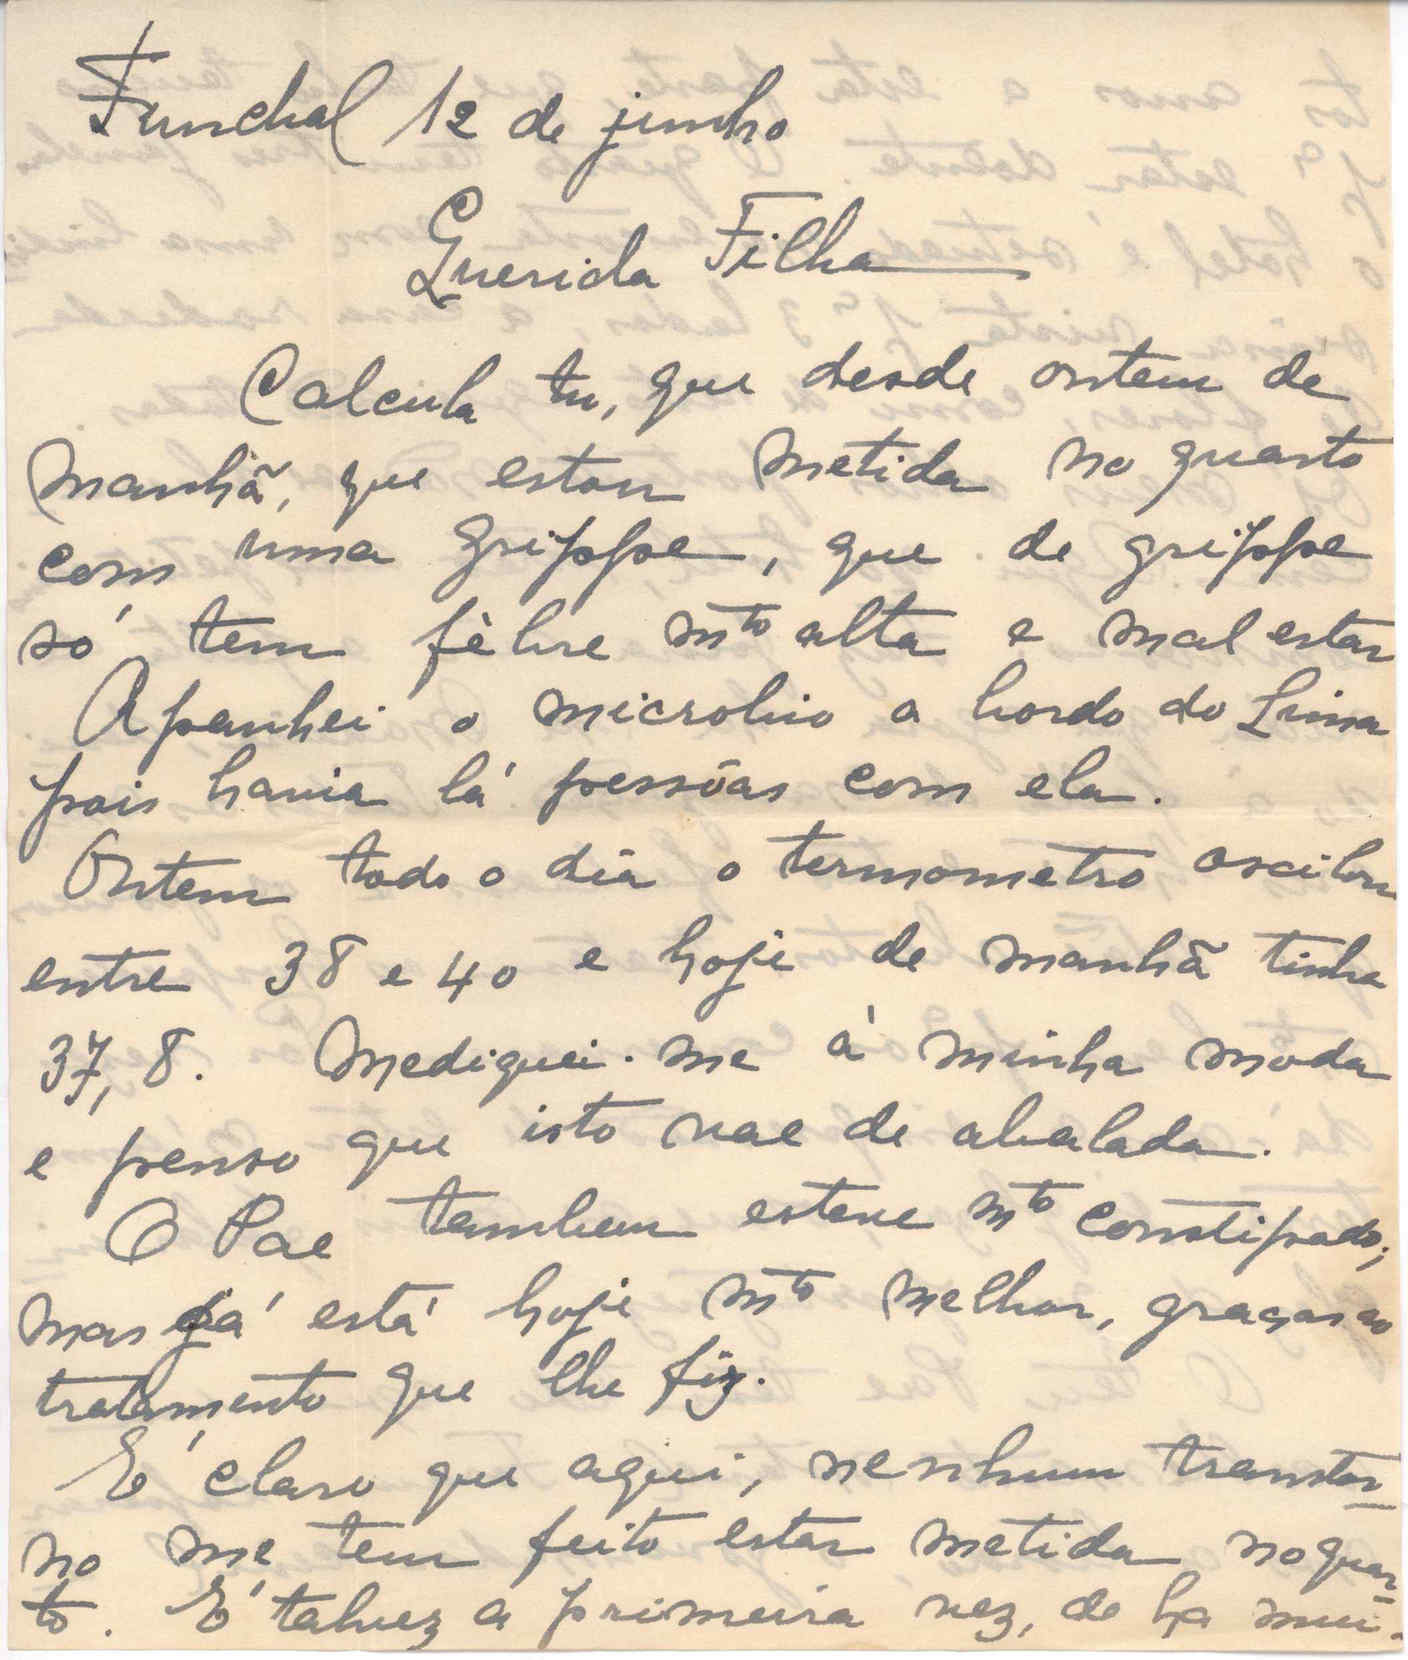 Funchal 12 de junho
Querida Filha
Calcula tu, que desde ontem de
manhã, que estou metida no quarto
com uma grippe, que de grippe
só tem fèbre mto alta e mal estar
Apanhei o microbio a bordo do Lima
pois havia lá pessôas com ela.
Ontem todo o dia o termometro oscilou
entre 38 e 40 e hoje de manhã tinha
37,8. Mediquei-me à minha moda
e penso que isto vae de abalada.
O Pae tambem esteve mto constipado;
mas já está hoje mto melhor, graças ao
tratamento que lhe fiz.
É claro que aqui, nenhum transtor-
no me tem feito estar metida no quar-
to. É talvez a primeira vez, de ha mui-